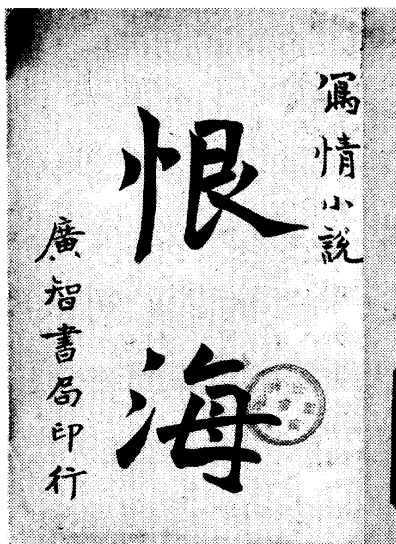 寫情小說
恨海
廣智書局印行